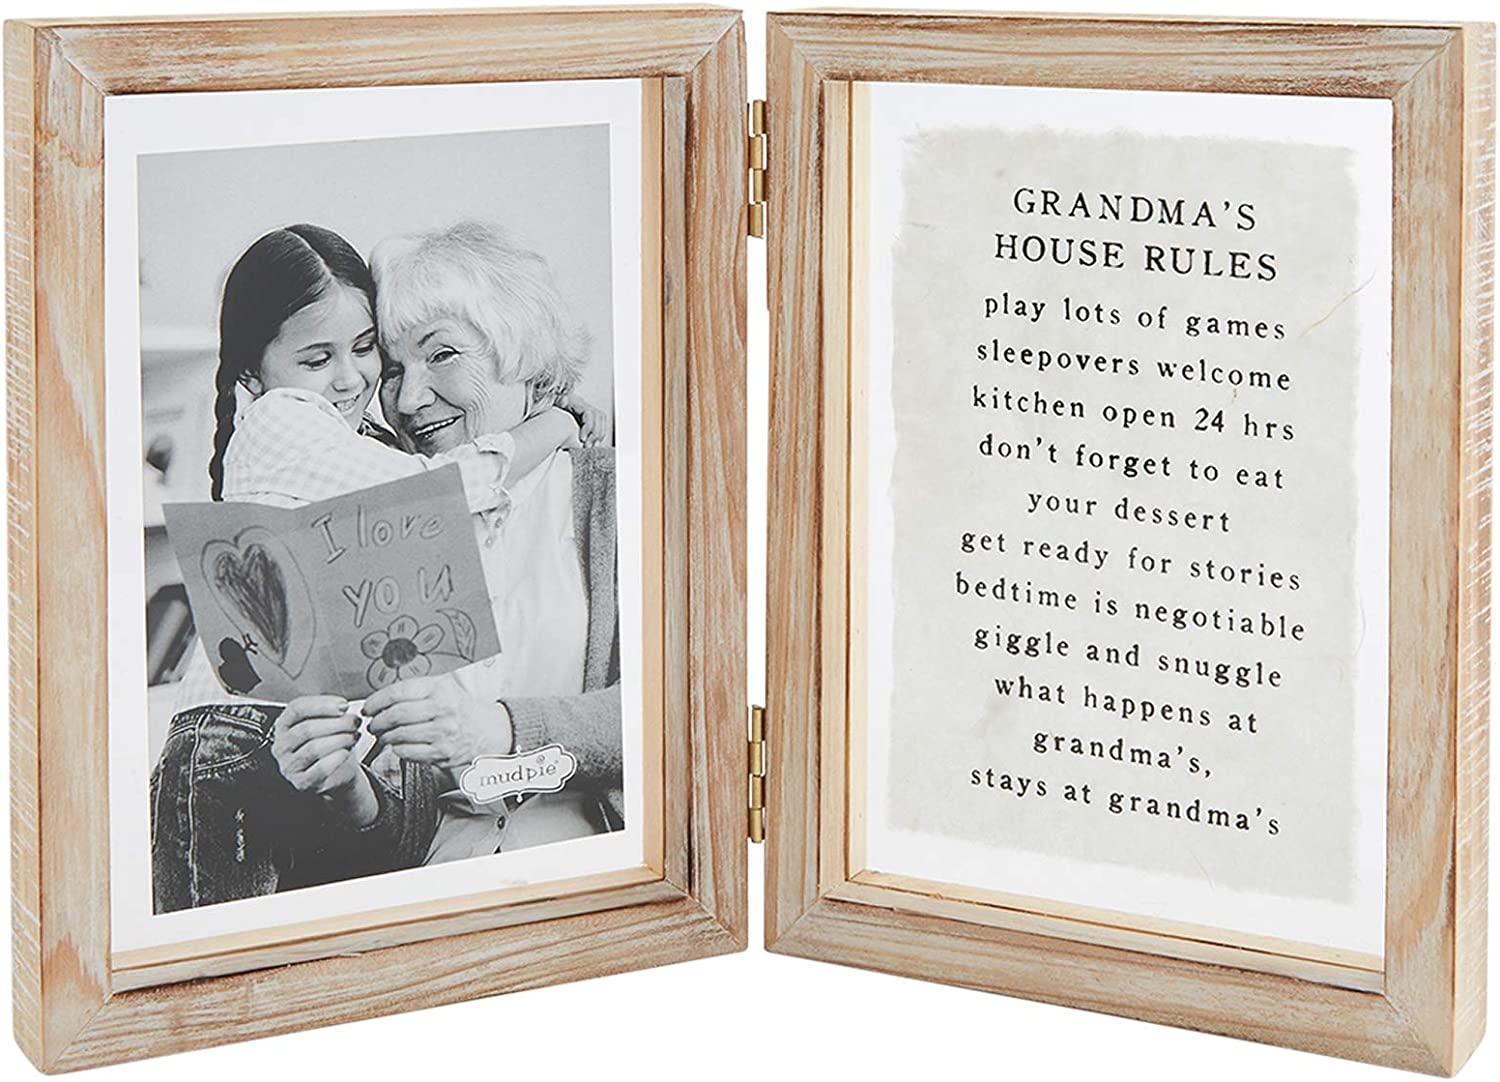 I love
you
mudpie
GRANDMA'S
HOUSE RULES
play lots of games
sleepovers welcome
kitchen open 24 hrs
don't forget to eat
your dessert
get ready for stories
bedtime is negotiable
giggle and snuggle
what happens at
grandma's,
stays at grandma's